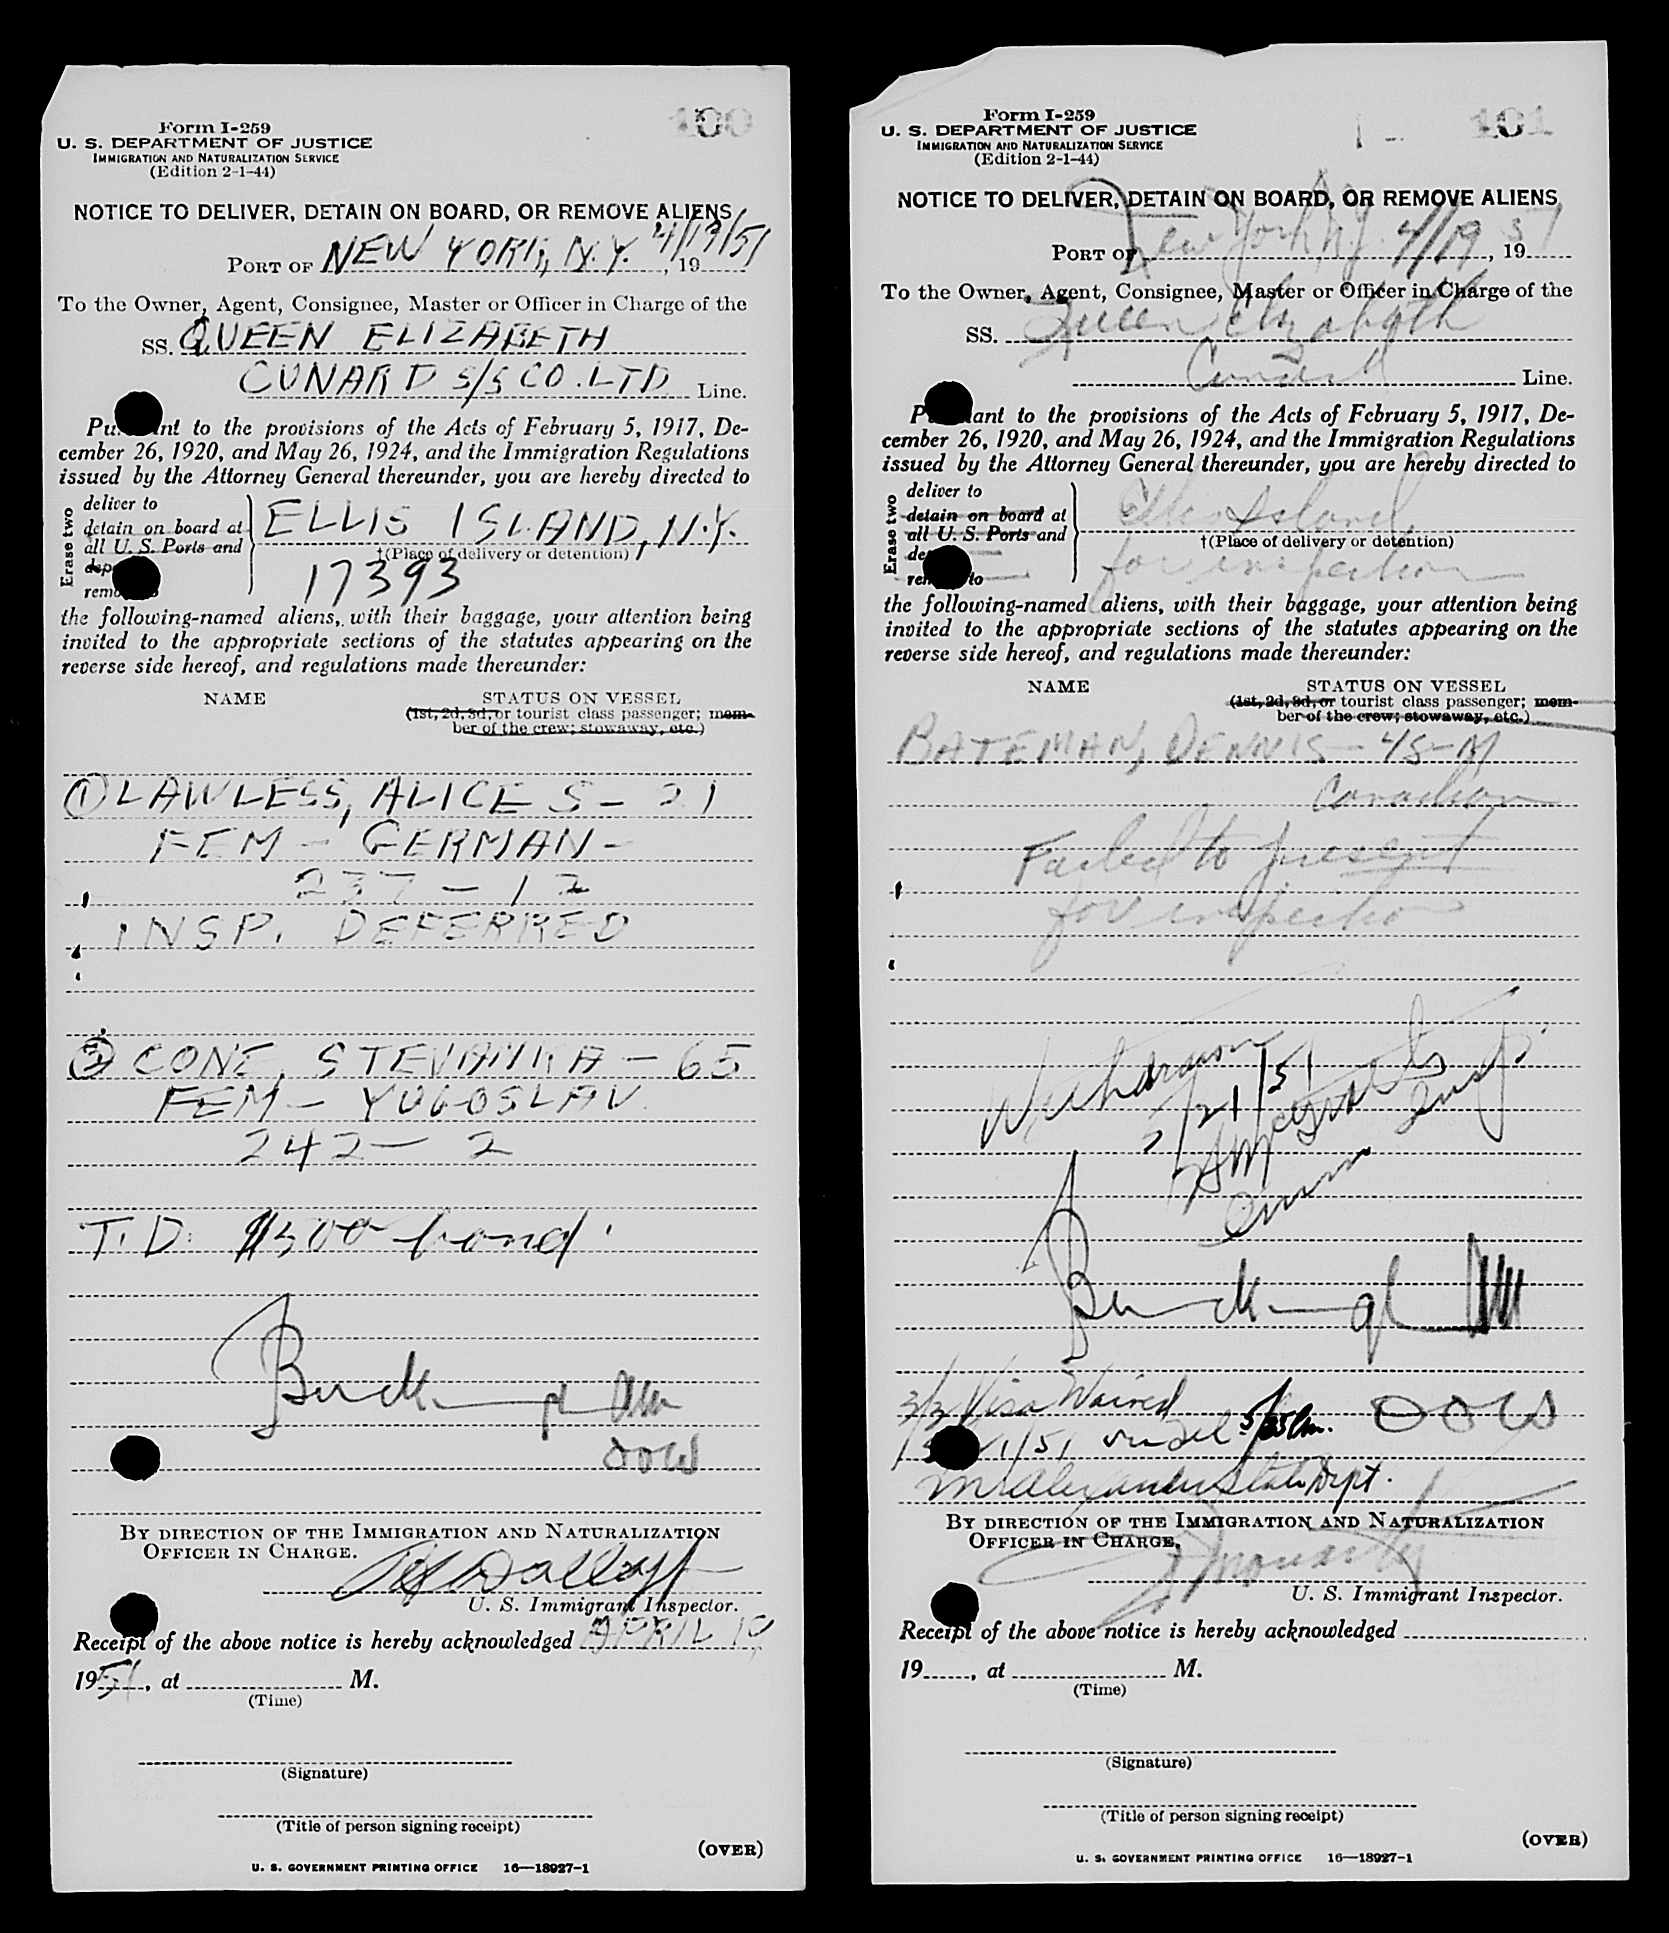 100
Form I-259
U. S. DEPARTMENT OF JUSTICE
IMMIGRATION AND NATURALIZATION SERVICE
(Edition 2-1-44)
NOTICE TO DELIVER, DETAIN ON BOARD, OR REMOVE ALIENS
PORT OF NEW YORK, N.Y. 4/19/51, 19
To the Owner, Agent, Consignee, Master or Officer in Charge of the
SS. QUEEN ELIZABETH
CUNARD S/S CO. LTD Line.
Pursuant to the provisions of the Acts of February 5, 1917, De-
cember 26, 1920, and May 26, 1924, and the Immigration Regulations
issued by the Attorney General thereunder, you are hereby directed to
Erase two
deliver to
detain on board at
all U. S. Ports and
ELLIS ISLAND, N.Y.
†(Place of delivery or detention)
dep
remo
17393
the following-named aliens, with their baggage, your attention being
invited to the appropriate sections of the statutes appearing on the
reverse side hereof, and regulations made thereunder:
NAME STATUS ON VESSEL
(1st, 2d, 3d, or tourist class passenger; mem-
ber of the crew; stowaway, etc.)
① LAWLESS, ALICE S - 21
FEM - GERMAN -
237 - 12
INSP. DEFERRED
② CONE, STEVANKA - 65
FEM - YUGOSLAV
242 - 2
T.D. $500 bond
DOW
BY DIRECTION OF THE IMMIGRATION AND NATURALIZATION
OFFICER IN CHARGE.
U. S. Immigrant Inspector.
Receipt of the above notice is hereby acknowledged APRIL 19
1951, at M.
(Time)
(Signature)
(Title of person signing receipt)
(OVER)
U. S. GOVERNMENT PRINTING OFFICE 16—18927-1
101
Form I-259
U. S. DEPARTMENT OF JUSTICE
IMMIGRATION AND NATURALIZATION SERVICE
(Edition 2-1-44)
NOTICE TO DELIVER, DETAIN ON BOARD, OR REMOVE ALIENS
PORT OF New York N.Y. 4/19, 1951
To the Owner, Agent, Consignee, Master or Officer in Charge of the
SS. Queen Elizabeth
Cunard Line.
Pursuant to the provisions of the Acts of February 5, 1917, De-
cember 26, 1920, and May 26, 1924, and the Immigration Regulations
issued by the Attorney General thereunder, you are hereby directed to
Erase two
deliver to
detain on board at
all U. S. Ports and
Ellis Island
†(Place of delivery or detention)
de
remove to
for inspection
the following-named aliens, with their baggage, your attention being
invited to the appropriate sections of the statutes appearing on the
reverse side hereof, and regulations made thereunder:
NAME STATUS ON VESSEL
(1st, 2d, 3d, or tourist class passenger; mem-
ber of the crew; stowaway, etc.)
BATEMAN, DENNIS - 45 - M
Canadian
Failed to present
for inspection
Withdrawn
21/51
Insp.
3/3 Visa Waived
DOW
State Dept.
BY DIRECTION OF THE IMMIGRATION AND NATURALIZATION
OFFICER IN CHARGE.
Moriarty
U. S. Immigrant Inspector.
Receipt of the above notice is hereby acknowledged
19, at M.
(Time)
(Signature)
(Title of person signing receipt)
(OVER)
U. S. GOVERNMENT PRINTING OFFICE 16—18927-1